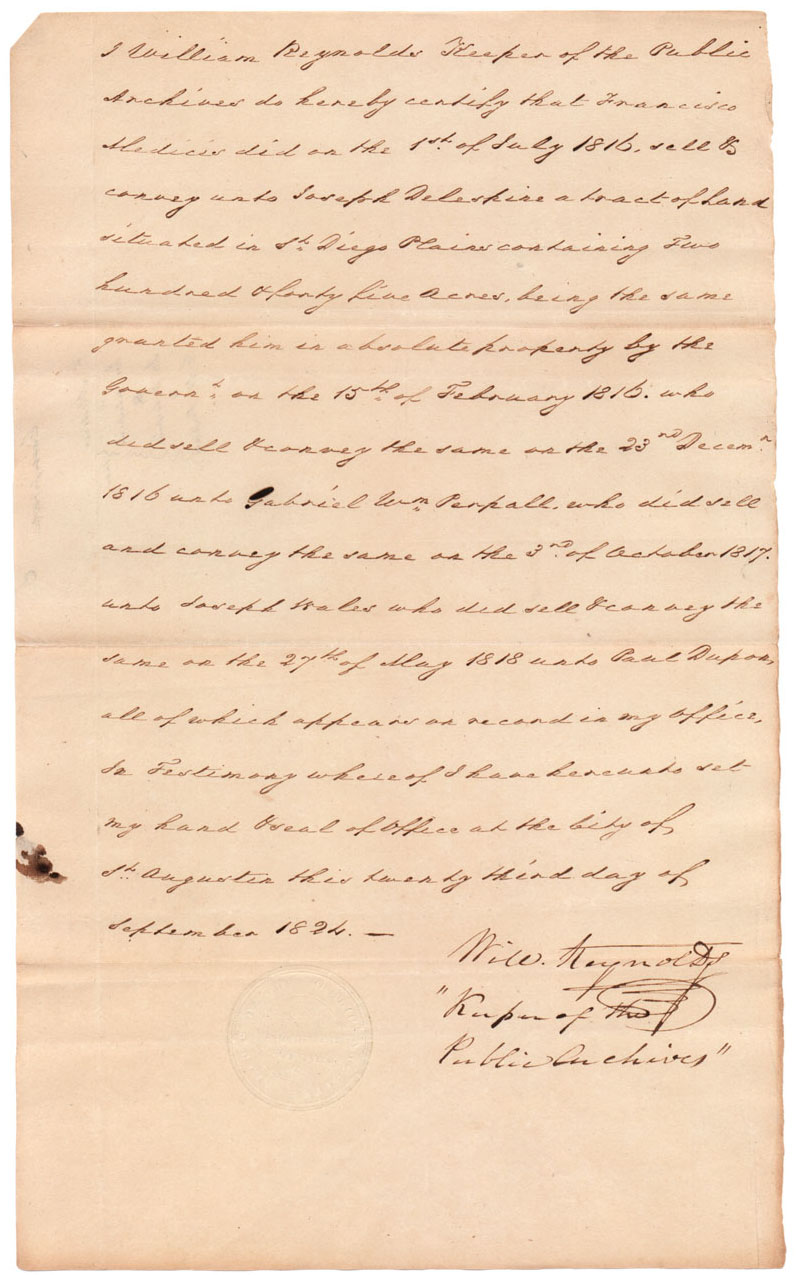 I William Reynolds Keeper of the Public
Archives do hereby certify that Francisco
Medicis did on the 1st. of July 1816, sell &
convey unto Joseph Delespine a tract of Land
situated in St. Diego Plains containing Two
hundred & forty five Acres, being the same
granted him in absolute property by the
Governt. on the 15th. of February 1816. who
did sell & convey the same on the 23nd Decemr.
1816 unto Gabriel Wm. Perpall, who did sell
and convey the same on the 3nd. of October 1817.
unto Joseph Wales who did sell & convey the
same on the 27th. of May 1818 unto Paul Dupon,
all of which appears on record in my Office,
In Testimony whereof I have hereunto set
my hand & seal of Office at the City of
St. Augustin this twenty third day of
September 1824. —
Will. Reynolds
"Keeper of the
Public Archives"